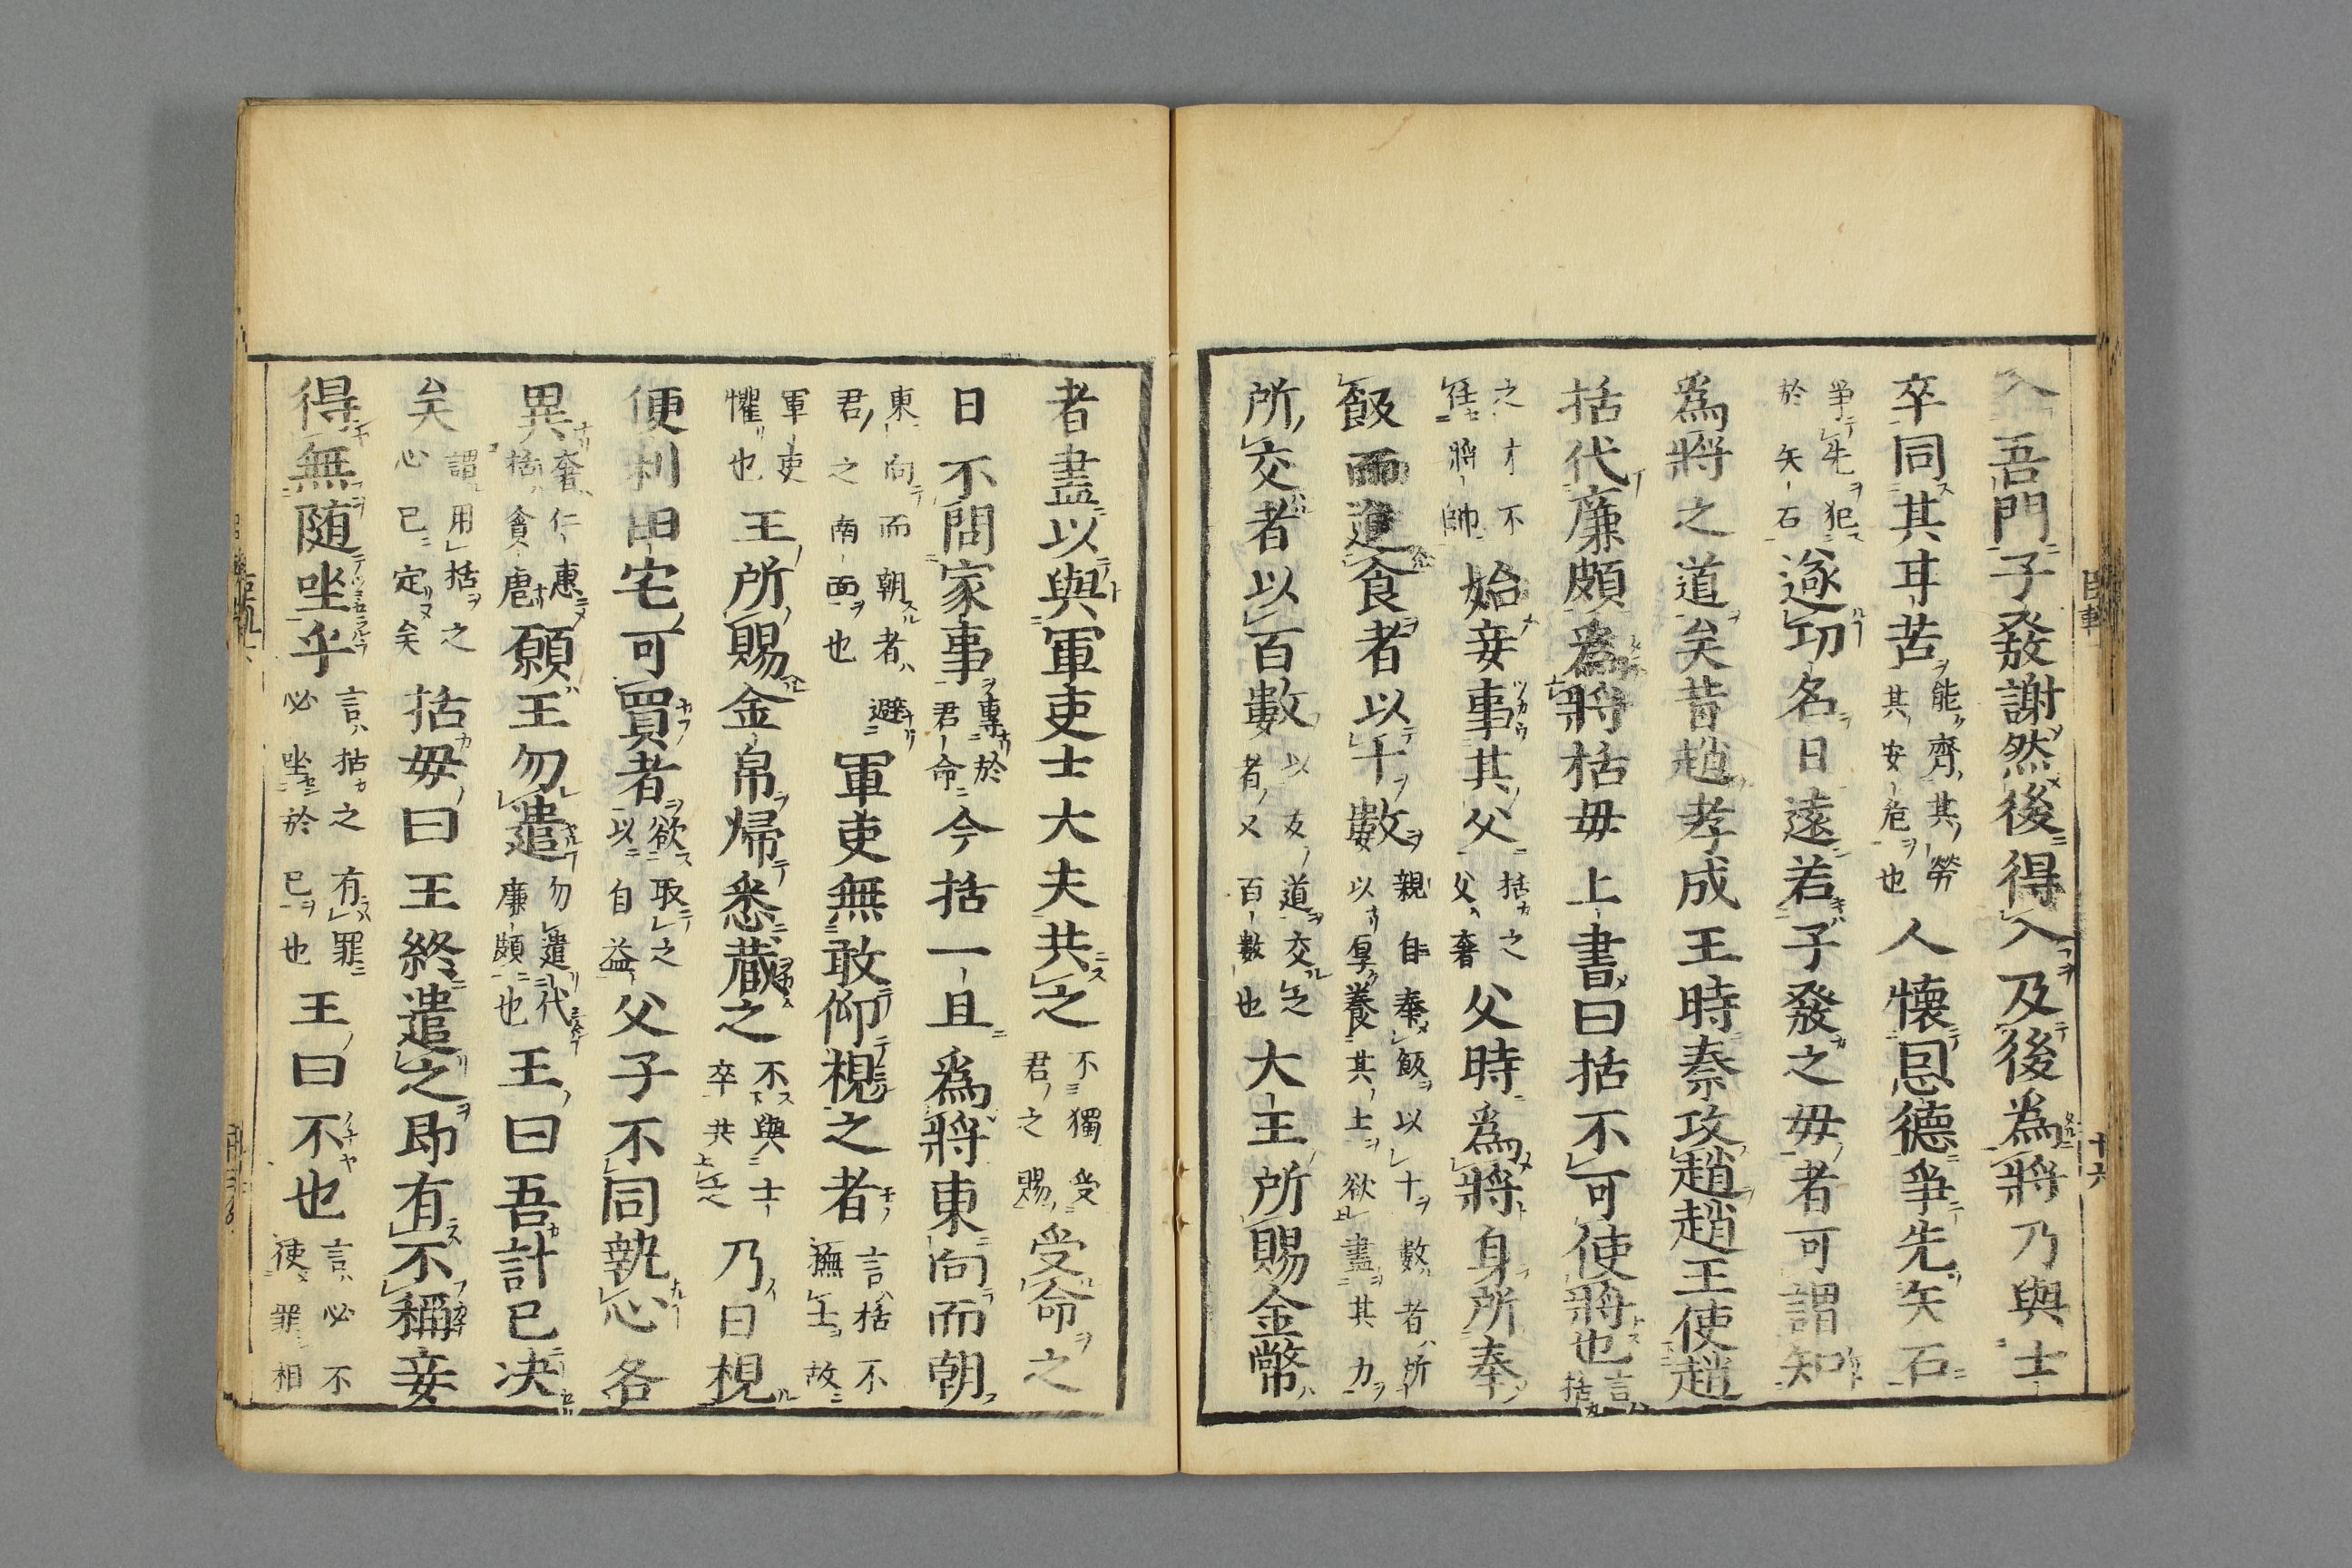 入吾門子發謝然後得入及後爲將乃與士
卒同其耳苦能齊其勞其安危也人懷恩德爭先矢石
爭先犯於矢石逡功名日遠若子發之毋者可謂知
爲將之道矣昔趙孝成王時秦攻趙趙王使趙
括代廉頗爲將括毋上書曰括不可使將也言括
之才不任將帥始妾事其父括之父奢父時爲將身所奉
飯而進食者以十數親自奉飯以十數者所以厚養其上欲盡其力
所交者以百數以友道交之者又百數也大王所賜金幣
者盡以與軍吏士大夫共之不獨受君之賜受命之
日不問家事專於君命今括一旦爲將東向而朝
東向而朝者避君之南面也軍吏無敢仰視之者言括不撫士故
軍吏懼也王所賜金帛歸悉藏之不與士卒共之乃曰視
便利田宅可買者欲取之以自益父子不同執心各
異奢仁惠括貪虐願王勿遣勿遣代廉頗也王曰吾計已决
矣謂用括之心已定矣括毋曰王終遣之即有不稱妾
得無随坐乎言括之有罪必坐於已也王曰不也言必不使罪相